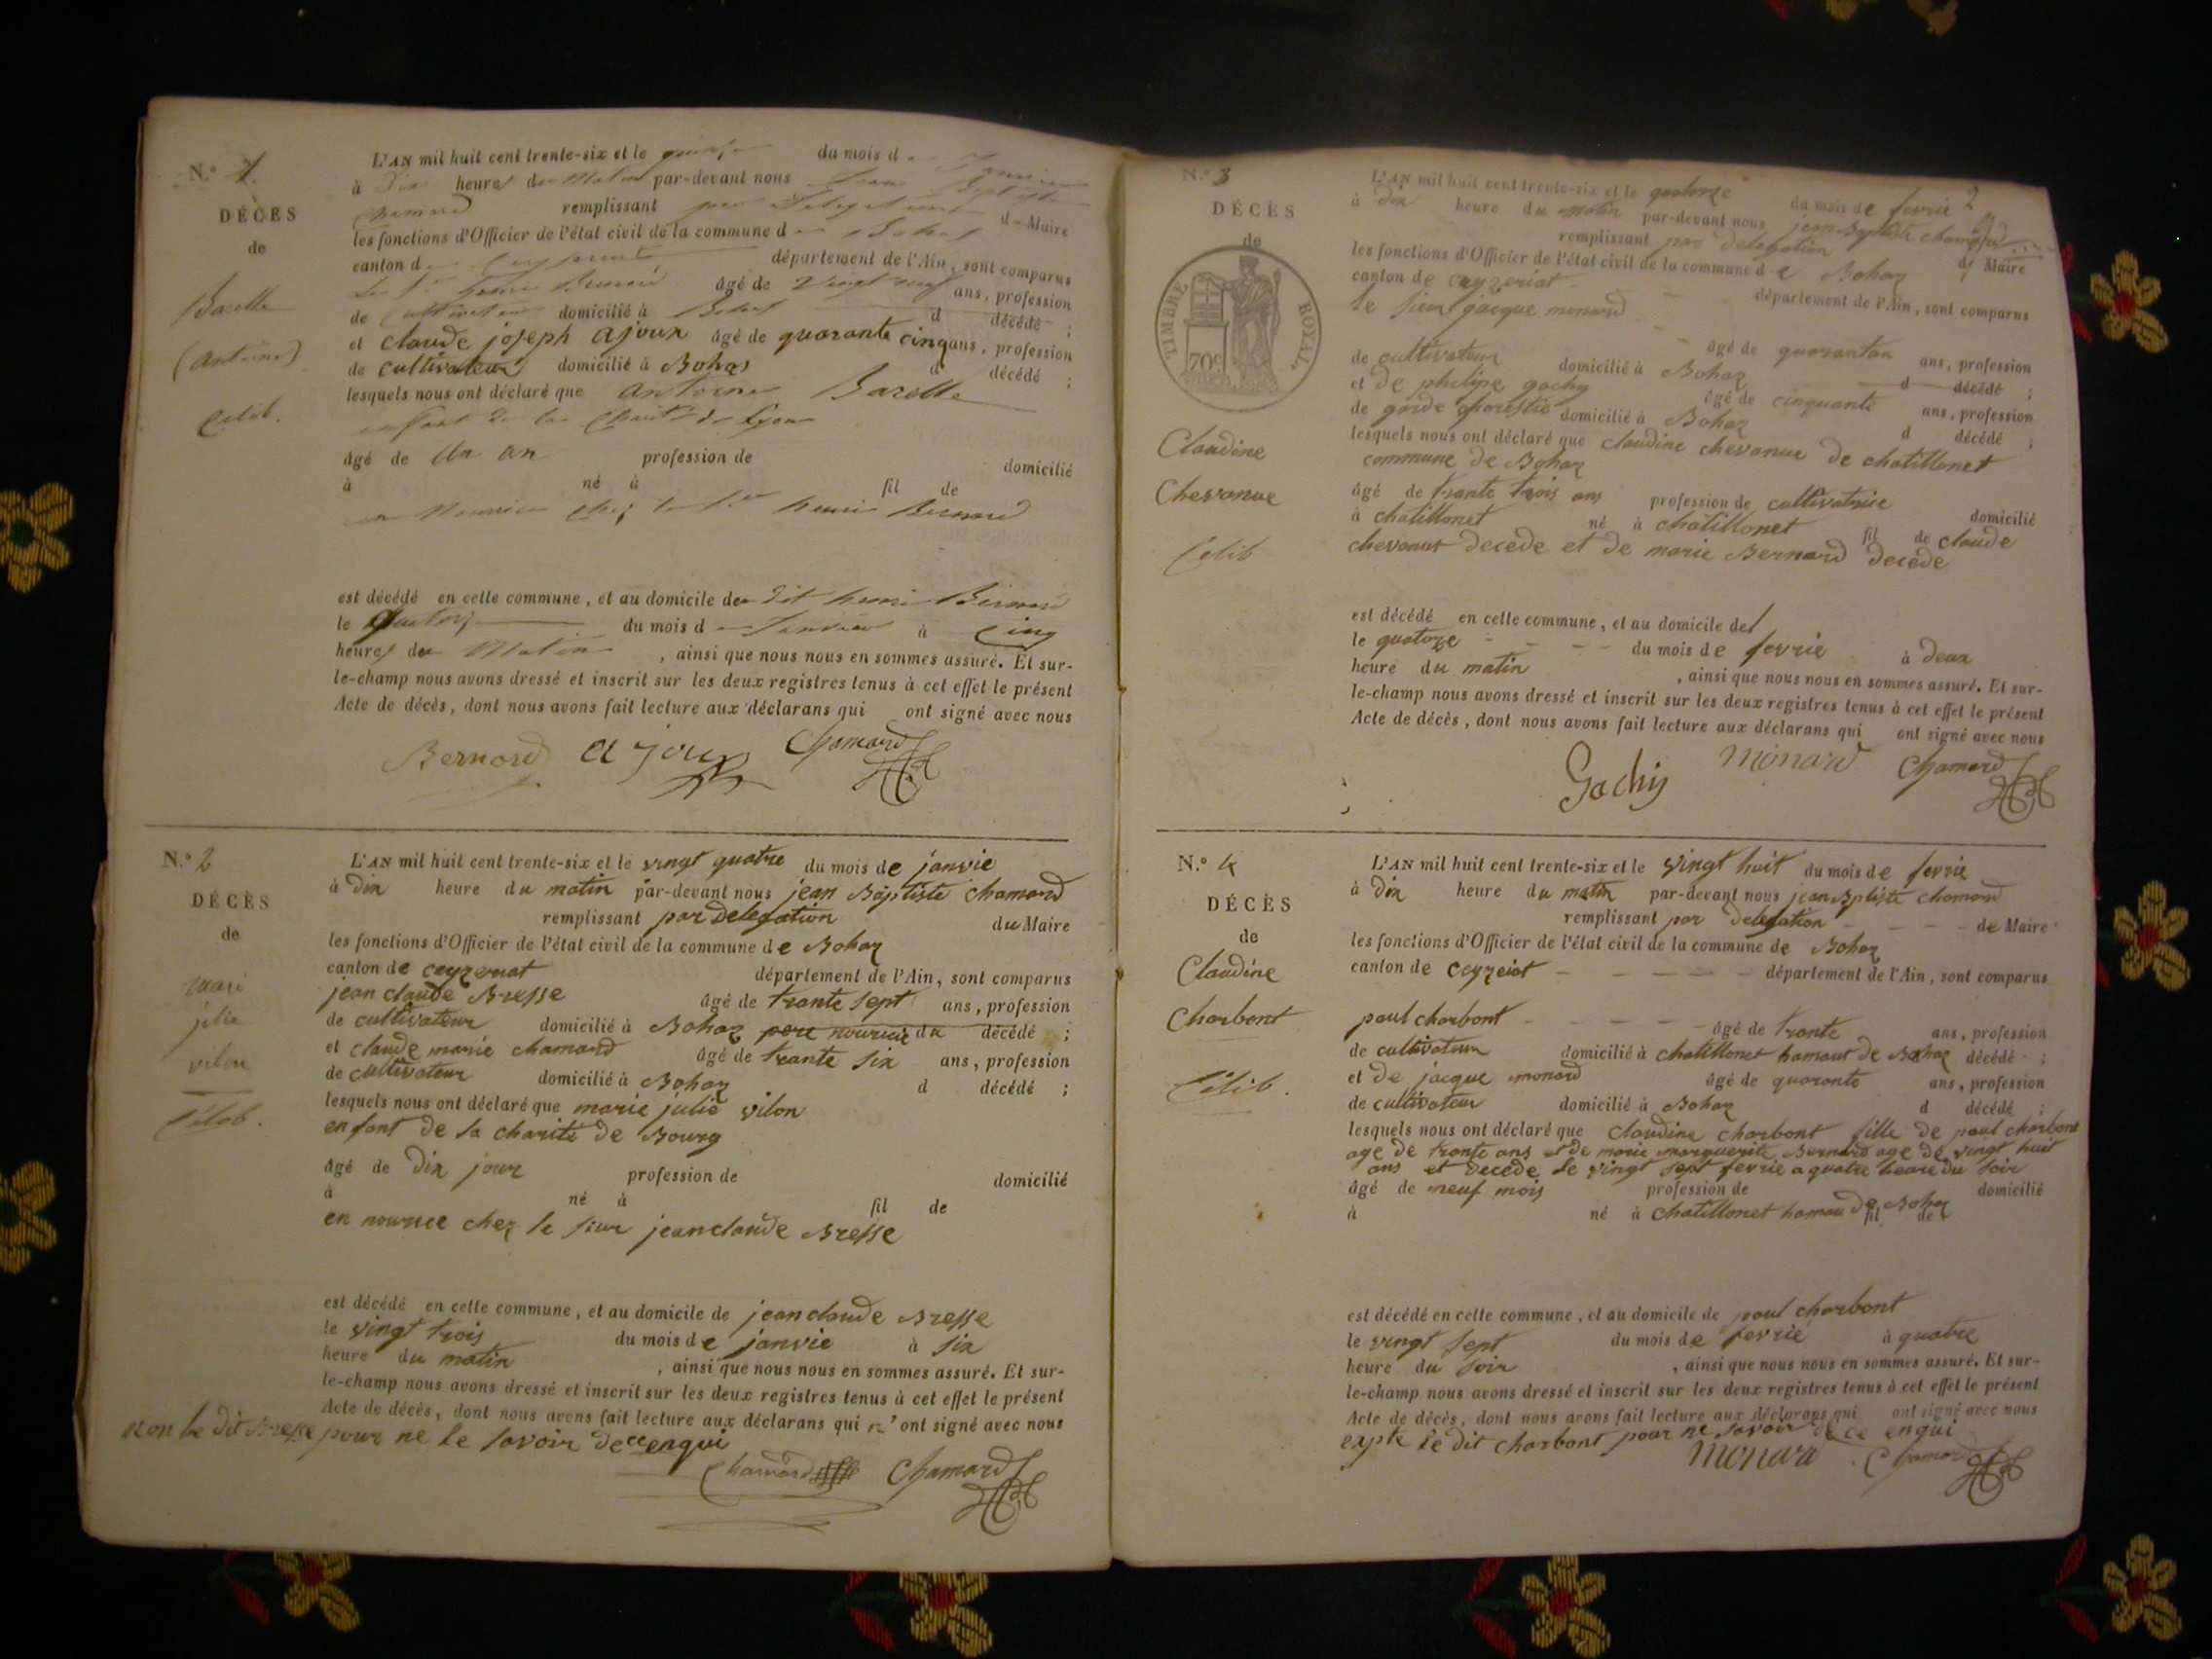 N.º 1.
DÉCÈS
de
Bazelle
(antoine)
Celib.
L'AN mil huit cent trente-six et le quinze du mois de Janvier
à Dix heures du Matin par-devant nous Jean Baptiste
Chamard remplissant par Delegation du Maire
les fonctions d'Officier de l'état civil de la commune de Bohas
canton de département de l'Ain, sont comparus
Le Sr henri Bernard âgé de Vingt neuf ans, profession
de Cultivateur domicilié à Bohas d décédé ;
et claude joseph ajoux âgé de quarante cinq ans, profession
de cultivateur domicilié à Bohas d décédé ;
lesquels nous ont déclaré que antoine Bazelle
enfant de la Charité de Lyon
âgé de Un an profession de domicilié
à né à fil de
en Nourrice chez le Sr henri Bernard
est décédé en cette commune, et au domicile du dit henri Bernard
le quatorze du mois de Janvier à Cinq
heures du Matin , ainsi que nous nous en sommes assuré. Et sur-
le-champ nous avons dressé et inscrit sur les deux registres tenus à cet effet le présent
Acte de décès, dont nous avons fait lecture aux déclarans qui ont signé avec nous
Bernard ajoux Chamard
N.º 2
DÉCÈS
de
mari
julie
vilon
Célib.
L'AN mil huit cent trente-six et le vingt quatre du mois de janvie
à Dix heure du matin par-devant nous jean Baptiste chamard
remplissant par Delegation du Maire
les fonctions d'Officier de l'état civil de la commune de Bohaz
canton de ceyzeriat département de l'Ain, sont comparus
jean claude Bresse âgé de trante sept ans, profession
de cultivateur domicilié à Bohaz pere nouricie du décédé ;
et claude marie chamard âgé de trante six ans, profession
de cultivateur domicilié à Bohaz d décédé ;
lesquels nous ont déclaré que marie julie vilon
enfant de la charité de Bourg
âgé de Dix jour profession de domicilié
à né à fil de
en nourice chez le sieur jean claude Bresse
est décédé en cette commune, et au domicile de jean claude Bresse
le vingt trois du mois de janvie à six
heure du matin , ainsi que nous nous en sommes assuré. Et sur-
le-champ nous avons dressé et inscrit sur les deux registres tenus à cet effet le présent
Acte de décès, dont nous avons fait lecture aux déclarans qui n'ont signé avec nous
non le dit Bresse pour ne le savoir de ce enqui
Chamard Chamard
2
N.º 3
DÉCÈS
de
TIMBRE ROYAL
70c
Claudine
Chevanue
Célib
L'AN mil huit cent trente-six et le quatorze du mois de fevrie
à dix heure du matin par-devant nous jean Baptiste chamard
remplissant par delegation du Maire
les fonctions d'Officier de l'état civil de la commune de Bohaz
canton de ceyzeriat département de l'Ain, sont comparus
le sieur jacque monard
âgé de ans, profession
de cultivateur domicilié à Bohaz d décédé ;
et de philipe gachy âgé de cinquante ans, profession
de garde domicilié à Bohaz d décédé ;
lesquels nous ont déclaré que claudine chevanue de chatillonet
commune de Bohaz
âgé de trante trois ans profession de cultivatrice domicilié
à chatillonet né à chatillonet fil de claude
chevanue decede et de marie Bernard decede
est décédé en cette commune, et au domicile de
le quatoze du mois de fevrie à deux
heure du matin , ainsi que nous nous en sommes assuré. Et sur-
le-champ nous avons dressé et inscrit sur les deux registres tenus à cet effet le présent
Acte de décès, dont nous avons fait lecture aux déclarans qui ont signé avec nous
Gachy monard Chamard
N.º 4
DÉCÈS
de
Claudine
Charbont
Célib.
L'AN mil huit cent trente-six et le vingt huit du mois de fevrie
à Dix heure du matin par-devant nous jean Bptiste chamard
remplissant par Delegation de Maire
les fonctions d'Officier de l'état civil de la commune de Bohaz
canton de ceyzeiat département de l'Ain, sont comparus
paul charbont âgé de trante ans, profession
de cultivateur domicilié à chatillonet hamaut de Bohaz décédé ;
et de jacque monard âgé de quarante ans, profession
de cultivateur domicilié à Bohaz d décédé ;
lesquels nous ont déclaré que claudine charbont fille de paul charbont
age de trante ans et de marie marguerite Bernard age de vingt huit
ans et decede le vingt sept fevrie a quatre heure du soir
âgé de neuf mois profession de domicilié
à né à chatillonet hamau de Bohaz fil de
est décédé en cette commune, et au domicile de paul charbont
le vingt sept du mois de fevrie à quatre
heure du soir , ainsi que nous nous en sommes assuré. Et sur-
le-champ nous avons dressé et inscrit sur les deux registres tenus à cet effet le présent
Acte de décès, dont nous avons fait lecture aux déclarans qui ont signé avec nous
expte le dit charbont pour ne savoir de ce enqui
monard Chamard